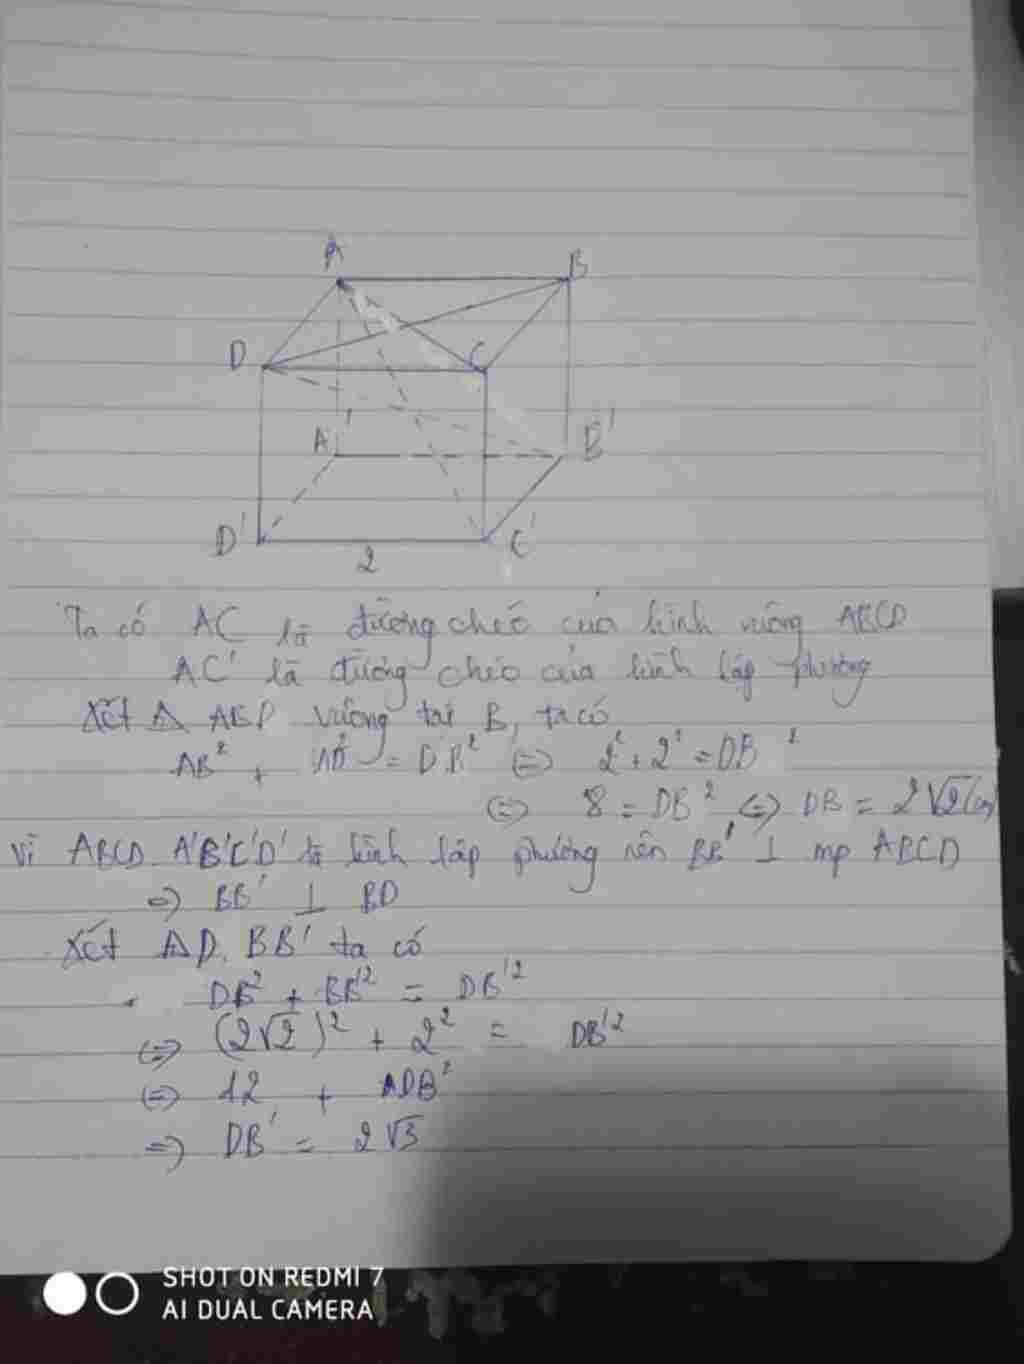 A
B
D
C
A'
B'
D'
C'
2
Ta có AC là đường chéo của hình vuông ABCD
AC' là đường chéo của hình lập phương
Xét Δ ABD vuông tại B, ta có
AB² + AD² = DB² (=) 2² + 2² = DB²
(=) 8 = DB² (=) DB = 2√2 (cm)
Vì ABCD.A'B'C'D' là hình lập phương nên BB' ⊥ mp ABCD
=) BB' ⊥ BD
Xét Δ D.BB' ta có
DB² + BB'² = DB'²
(=) (2√2)² + 2² = DB'²
(=) 12 +
=) DB' = 2√3
SHOT ON REDMI 7
AI DUAL CAMERA